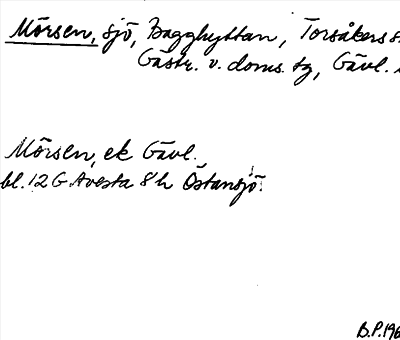 Mörsen, sjö, Bagghyttan, Torsåkers s
Gästr. v. doms. tg, Gävl.
Mörsen, ek Gävl.
bl. 12 G Avesta 8 h Östansjö.
B.P. 196